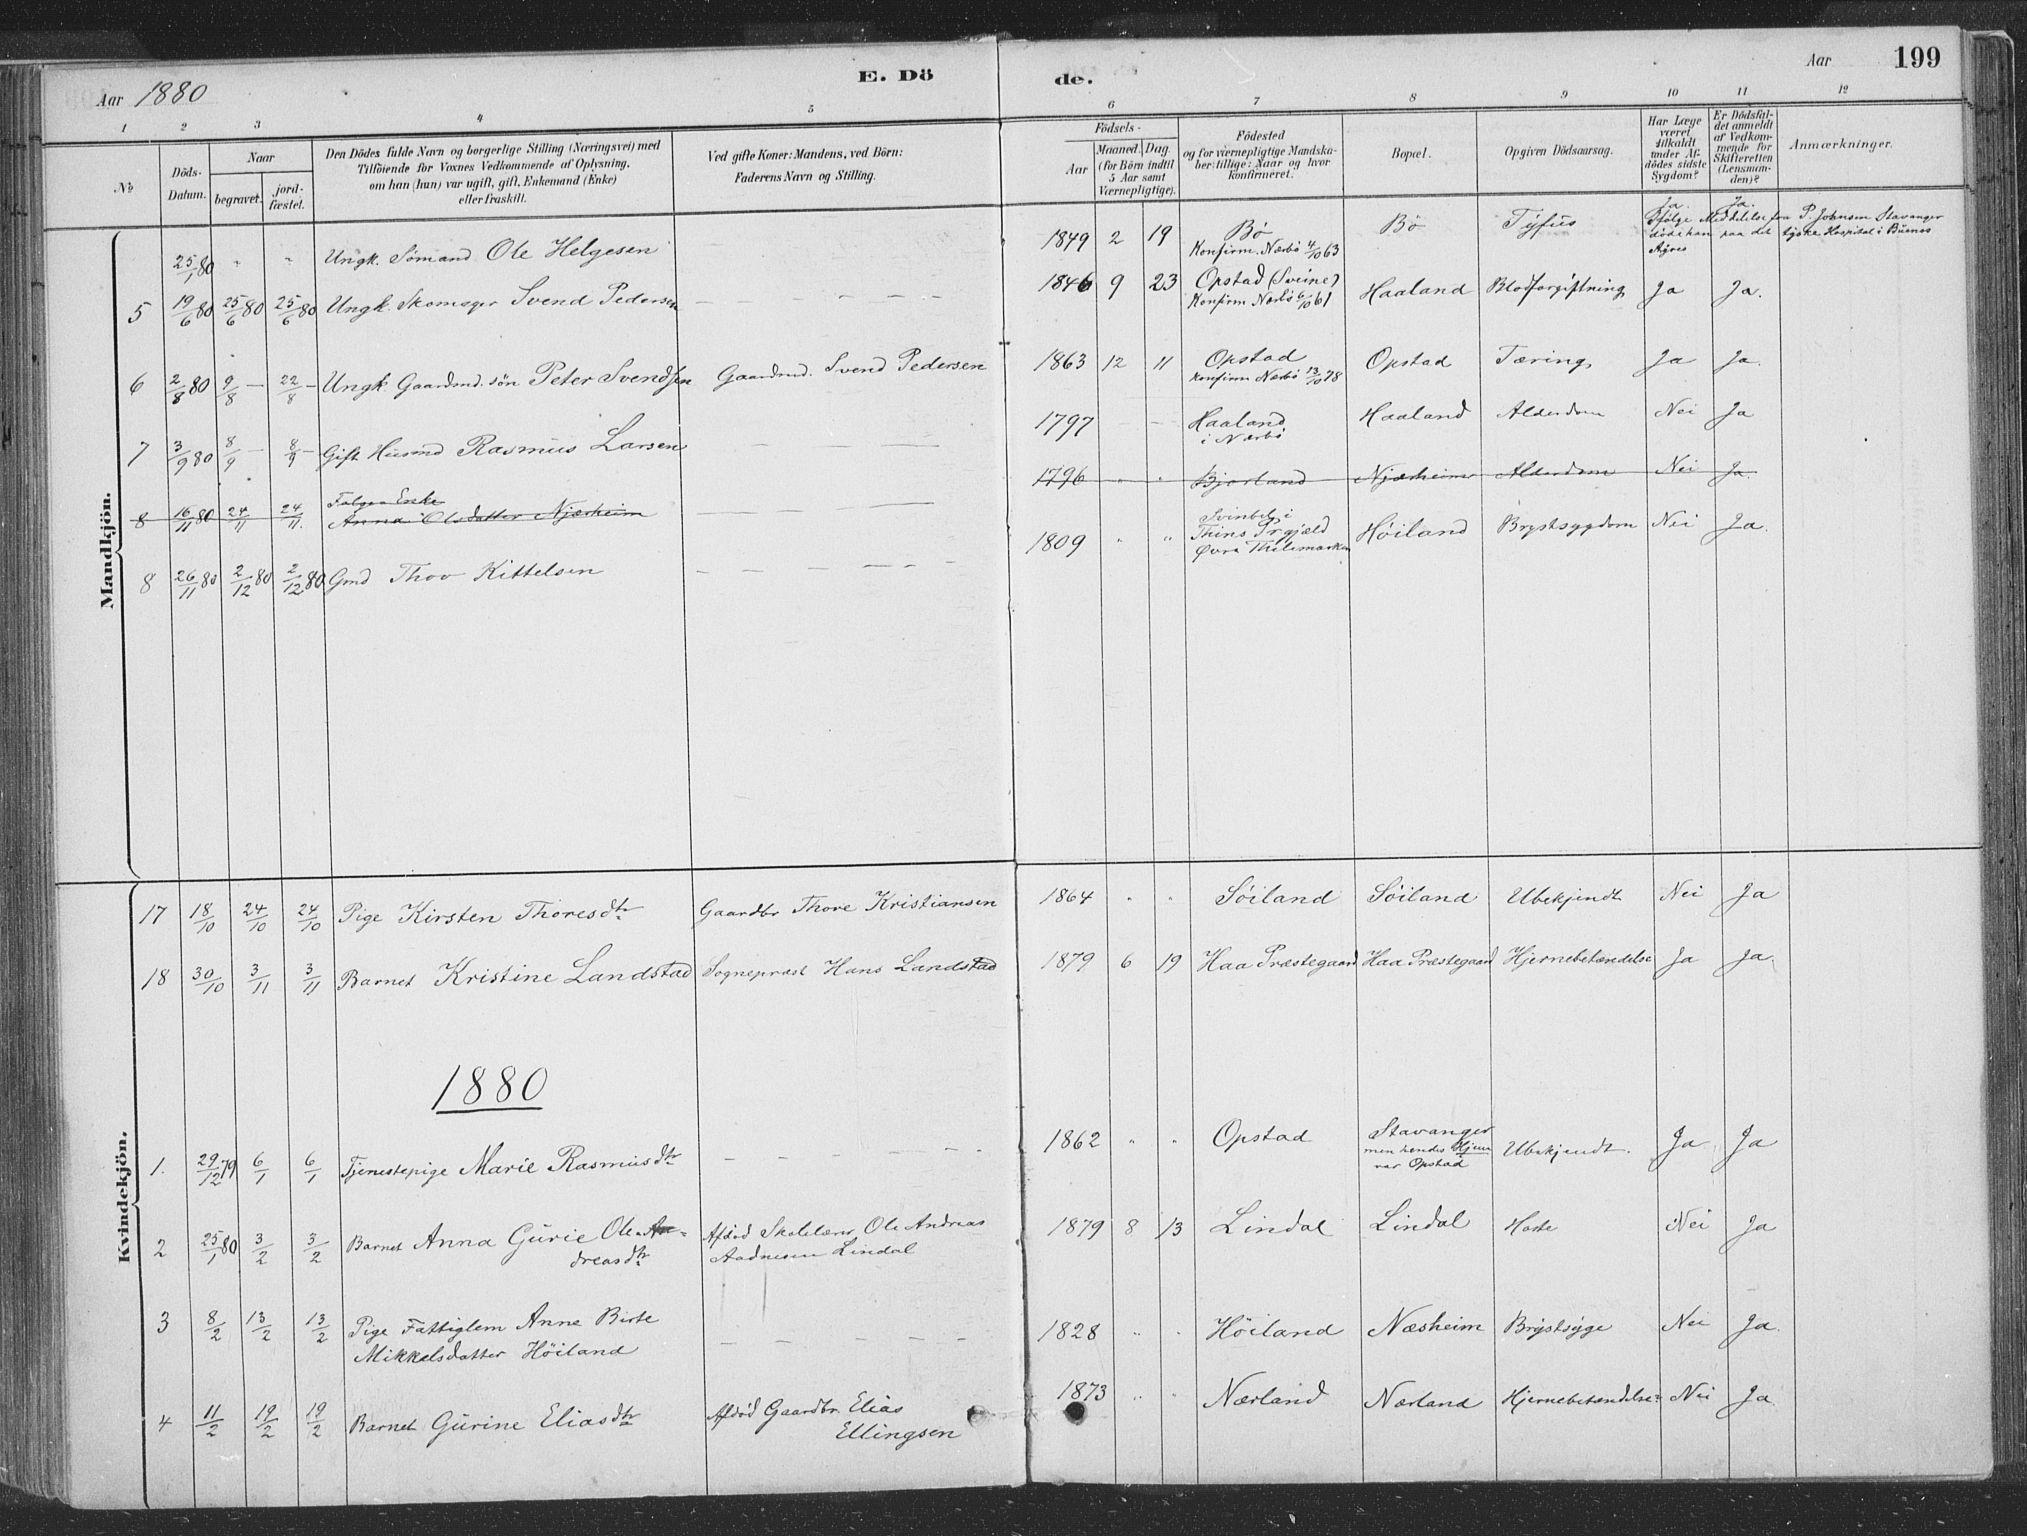 Aar 1880
E. Dö
de.
Aar
199
1 2 3 4 5 6 7 8 9 10 11 12
№
Döds-
Datum.
Naar
begravet.
jord-
fæstet.
Den Dödes fulde Navn og borgerlige Stilling (Næringsvei) med
Tilföiende for Voxnes Vedkommende af Oplysning,
om han (hun) var ugift, gift, Enkemand (Enke)
eller fraskilt.
Ved gifte Koner: Mandens, ved Börn:
Faderens Navn og Stilling.
Födsels-
Aar
Maaned. Dag.
(for Börn indtil
5 Aar samt
Værnepligtige).
Födested
og for værnepligtige Mandska-
ber: tillige: Naar og hvor
konfirmeret.
Bopæl.
Opgiven Dödsaarsag.
Har Læge
været
tilkaldt
under Af-
dödes sidste
Sygdom?
Er Dödsfal-
det anmeldt
af Vedkom-
mende for
Skifteretten
(Lensman-
den)?
Anmærkninger.
Mandkjön.
25/1 80 " " Ungk. Sömand Ole Helgesen 1849 2 19 Bö Konfirm. Nærbö 4/10 63 Bö Tyfus Ja. Ja.
Ifölge Meddelelse fra P. Johnsen Stavanger
döde han paa det tyske Hospital i Buenos
Ayres
5 19/6 80 25/6 80 25/6 80 Ungk. Skomager Svend Pedersen 1846 9 23 Opstad (Sveine) Konfirm Nærbö 6/10 61 Haaland Blodforgiftning Ja Ja.
6 2/8 80 9/8 — 22/8 — Ungk. Gaardmd. sön Peter Svendsen Gaardmd. Svend Pedersen 1863 12 11 Opstad Konfirm Nærbö 13/10 78 Opstad Tæring Ja Ja.
7 3/9 80 8/9 — 8/9 — Gift Husmd Rasmus Larsen 1797 — — Haaland i Nærbö Haaland Alderdom Nei Ja
8 16/11 80 24/11 24/11. Enke Anna Olsdatter Njærheim 1796 " " Bjorland Njærheim Alderdom Nei Ja.
8 26/11 80 2/12 80 2/12 80 Gmd Thov Kittelsen 1809 " " i Thins Prgjæld Övre Thelemarken Höiland Brystsygdom Nei Ja.
Kvindekjön.
17 18/10 24/10 24/10 Pige Kirsten Thoresdtr Gaardbr Thore Kristiansen 1864 " " Söiland Söiland Ubekjendt Nei Ja
18 30/10 3/11 3/11 Barnet Kristine Landstad Sognepræst Hans Landstad 1879 6 19 Haa Præstegaard Haa Præstegaard Hjernebetændelse Ja Ja.
1880
1. 29/12 79 6/1 6/1 Tjenestepige Marie Rasmusdtr 1862 " " Opstad Stavanger men hendes Hjem var Opstad Ubekjendt. Ja Ja
2 25/1 80 3/2 3/2 Barnet Anna Gurie Ole An-
dreasdtr Afdöd Skolelærer Ole Andreas
Aadnesen Lindal 1879 8 13 Lindal Lindal Hoste Nei Ja
3 8/2 13/2 13/2 Pige Fattiglem Anne Birte
Mikkelsdatter Höiland 1828 " " Höiland Næsheim Brystsyge Nei Ja.
4 11/2 19/2 19/2 Barnet Gurine Eliasdtr Afdöd Gaardbr. Elias
Ellingsen 1873 " " Nærland Nærland Hjernebetændelse Nei Ja.